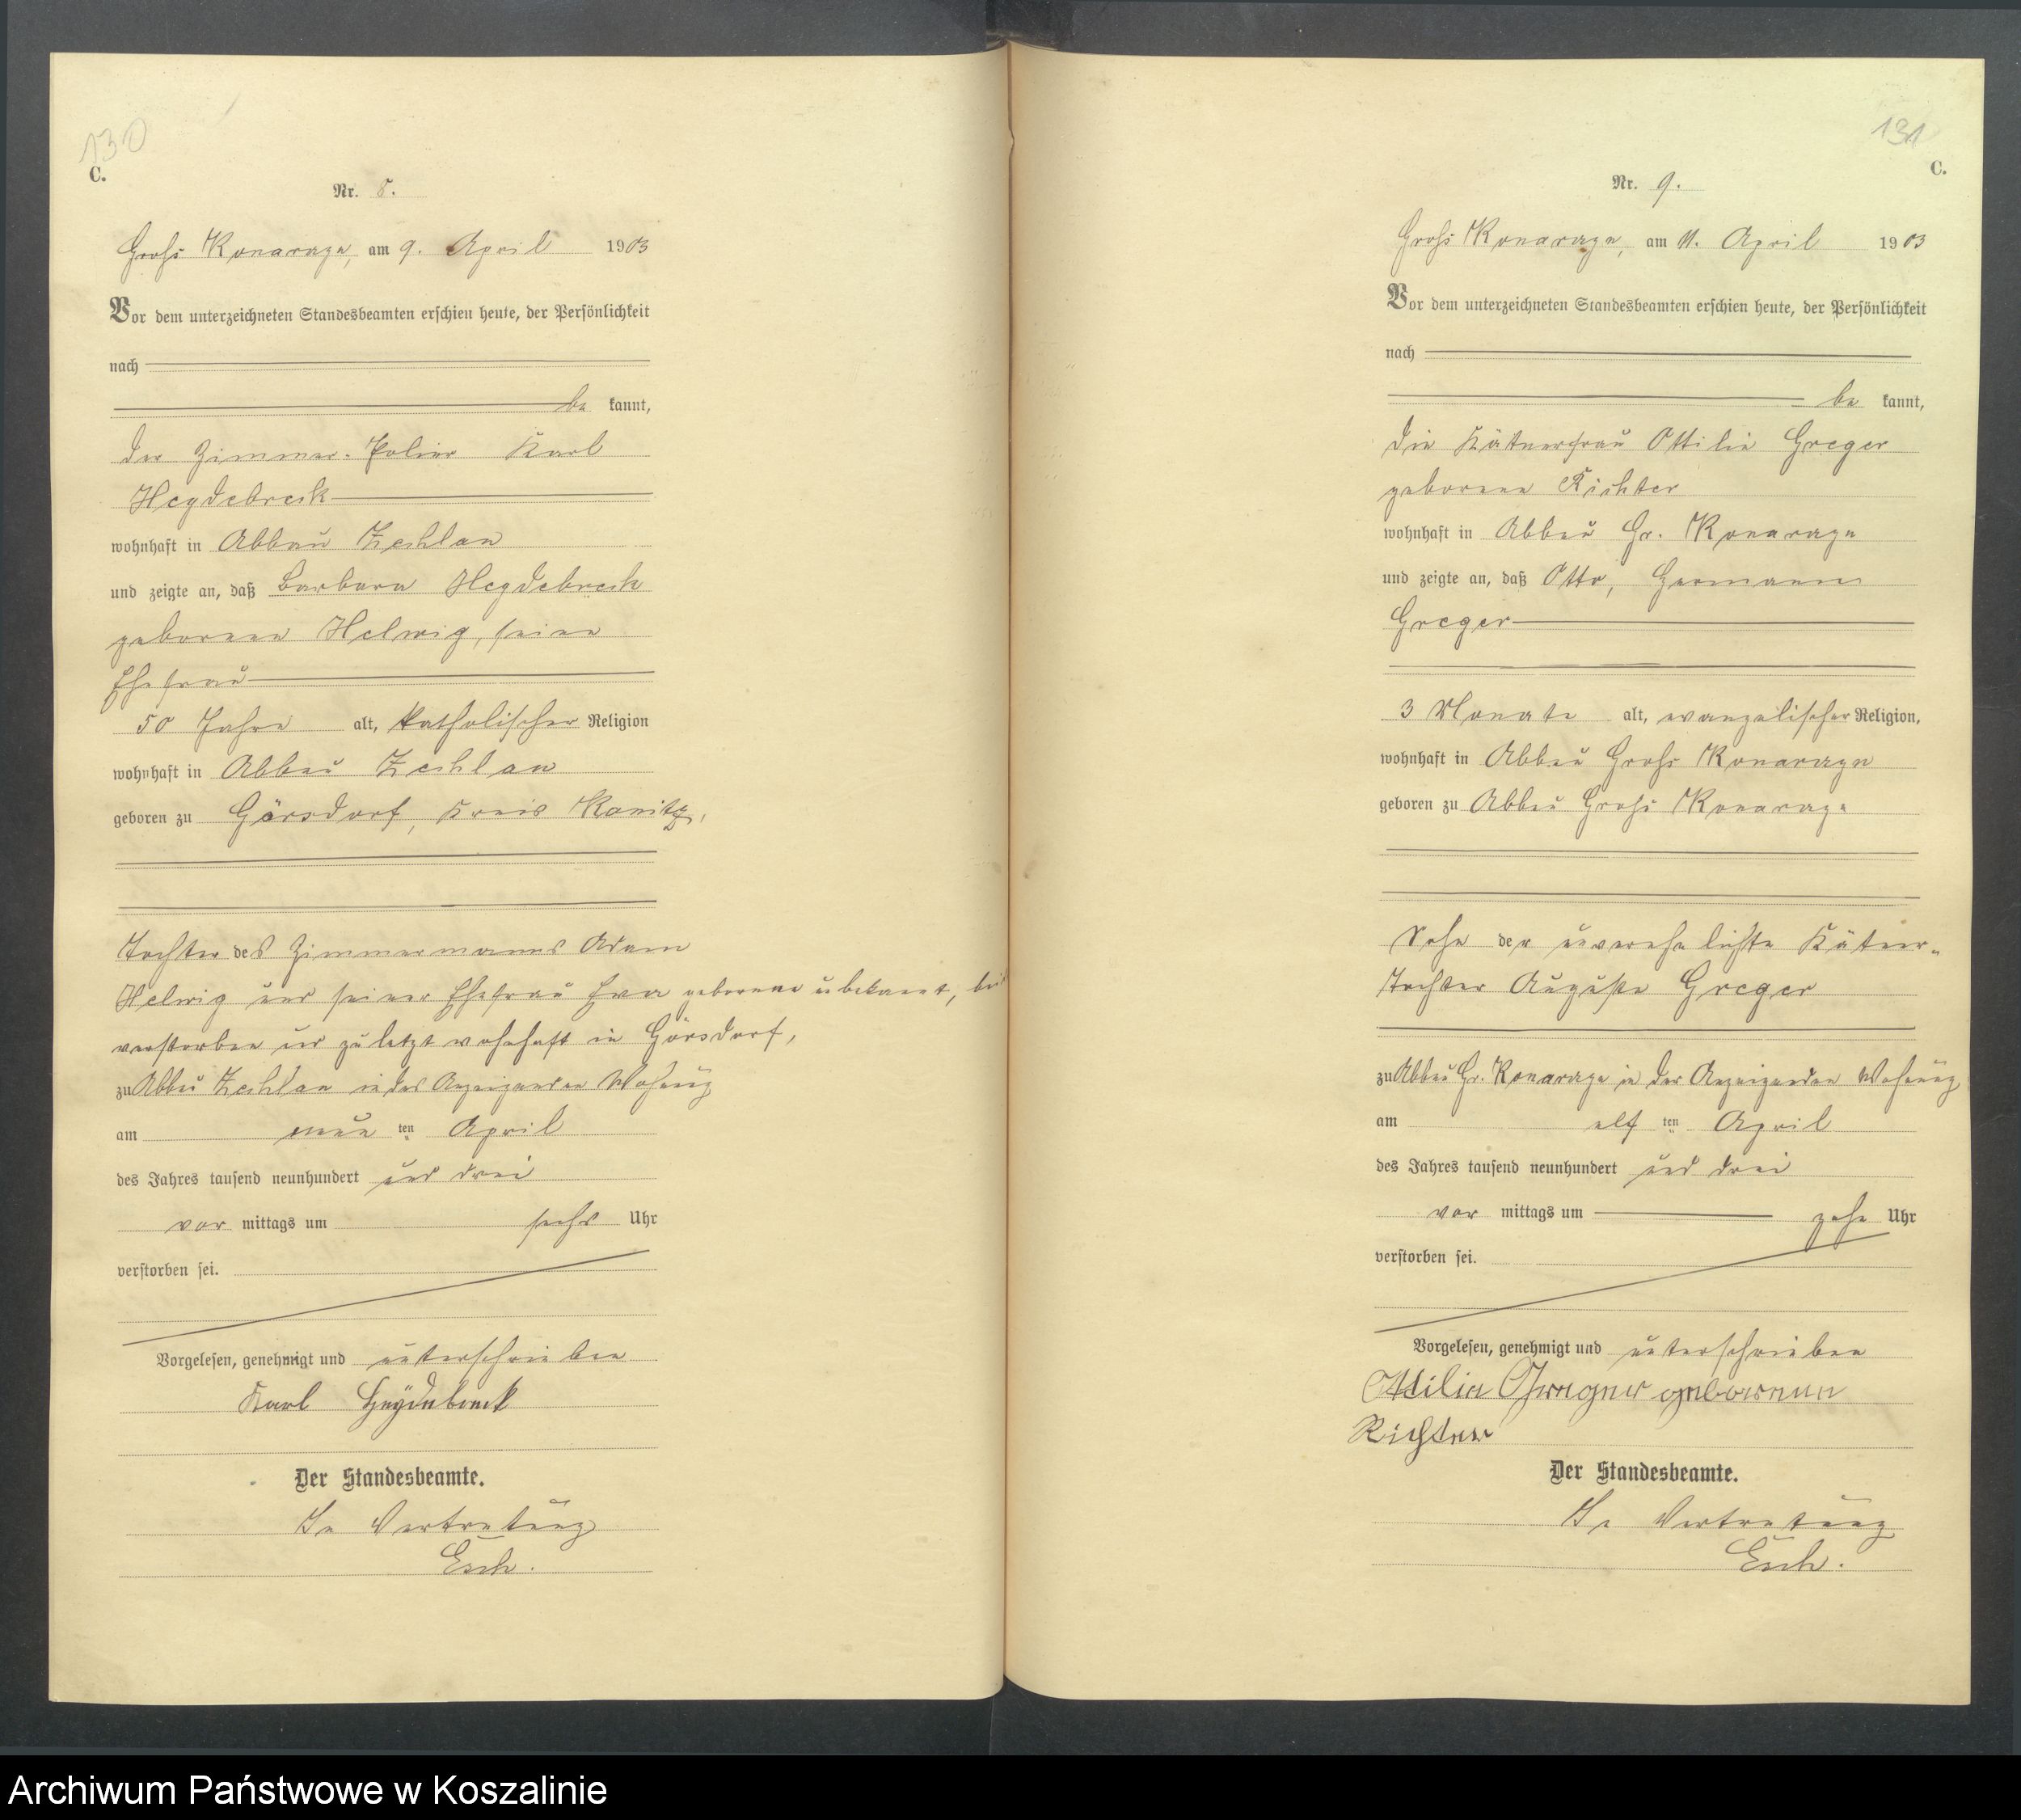 130
C.
Nr. 8.
Groß Konarczyn, am 9. April 1903
Vor dem unterzeichneten Standesbeamten erschien heute, der Persönlichkeit
nach
be kannt,
der Zimmer-Polier Karl
Heydebreck
wohnhaft in Abbau Zechlau
und zeigte an, daß Barbara Heydebreck
geborene Helwig, seine
Ehefrau
50 Jahre alt, katholischer Religion
wohnhaft in Abbau Zechlau
geboren zu Görsdorf, Kreis Konitz,
Tochter des Zimmermanns Adam
Helwig und seiner Ehefrau Eva geborene unbekannt, beide
verstorben und zuletzt wohnhaft in Görsdorf,
zu Abbau Zechlau in des Anzeigenden Wohnung
am neun ten April
des Jahres tausend neunhundert und drei
vor mittags um sechs Uhr
verstorben sei.
Vorgelesen, genehmigt und unterschrieben
Karl Heydebreck
Der Standesbeamte.
In Vertretung
Esch.
131
C.
Nr. 9.
Groß Konarczyn, am 11. April 1903
Vor dem unterzeichneten Standesbeamten erschien heute, der Persönlichkeit
nach
be kannt,
die Kätnerfrau Ottilie Greger
geborene Richter
wohnhaft in Abbau Gr. Konarczyn
und zeigte an, daß Otto, Hermann
Greger
3 Monate alt, evangelischer Religion,
wohnhaft in Abbau Groß Konarczyn
geboren zu Abbau Groß Konarczyn
Sohn der unverehelichte Kätner-
Tochter Auguste Greger
zu Abbau Gr. Konarczyn in der Anzeigenden Wohnung
am elf ten April
des Jahres tausend neunhundert und drei
vor mittags um zehn Uhr
verstorben sei.
Vorgelesen, genehmigt und unterschrieben
Ottilie Greger geborenen
Richter
Der Standesbeamte.
In Vertretung
Esch.
Archiwum Państwowe w Koszalinie